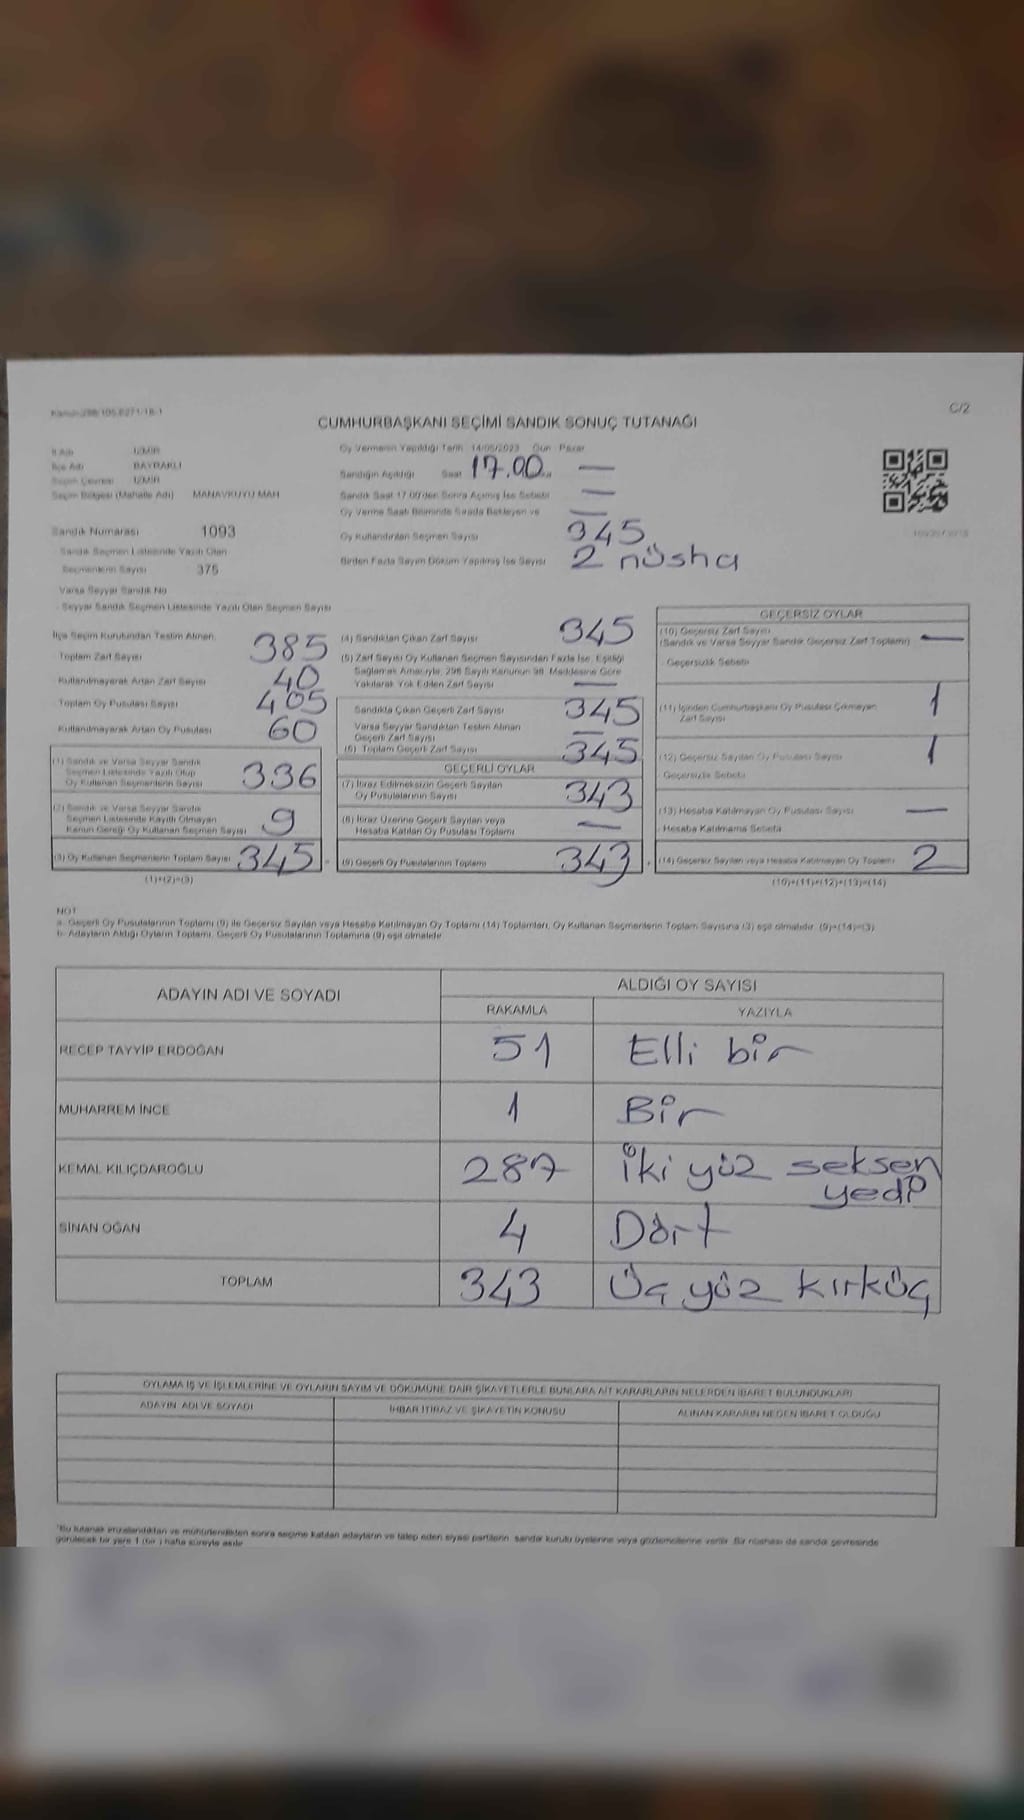 C/2
CUMHURBAŞKANI SEÇİMİ SANDIK SONUÇ TUTANAĞI
İl Adı İZMİR
İlçe Adı BAYRAKLI
Seçim Çevresi İZMİR
Seçim Bölgesi (Mahalle Adı) MANAVKUYU MAH
Oy Vermenin Yapıldığı Tarih 14/05/2023 Gün Pazar
Sandığın Açıldığı Saat 17.00 —
Sandık Saat 17.00'den Sonra Açılmış İse Sebebi —
Oy Verme Saati Bitiminde Sırada Bekleyen ve —
Oy Kullandırılan Seçmen Sayısı 345
Birden Fazla Sayım Döküm Yapılmış İse Sayısı 2 nüsha
Sandık Numarası 1093
Sandık Seçmen Listesinde Yazılı Olan
Seçmenlerin Sayısı 375
Varsa Seyyar Sandık No
Seyyar Sandık Seçmen Listesinde Yazılı Olan Seçmen Sayısı
İlçe Seçim Kurulundan Teslim Alınan
Toplam Zarf Sayısı 385
Kullanılmayarak Artan Zarf Sayısı 40
Toplam Oy Pusulası Sayısı 405
Kullanılmayarak Artan Oy Pusulası 60
(1) Sandık ve Varsa Seyyar Sandık
Seçmen Listesinde Yazılı Olup
Oy Kullanan Seçmenlerin Sayısı 336
(2) Sandık ve Varsa Seyyar Sandık
Seçmen Listesinde Kayıtlı Olmayan
Kanun Gereği Oy Kullanan Seçmen Sayısı 9
(3) Oy Kullanan Seçmenlerin Toplam Sayısı 345
(1)+(2)=(3)
(4) Sandıktan Çıkan Zarf Sayısı 345
(5) Zarf Sayısı Oy Kullanan Seçmen Sayısından Fazla İse, Eşitliği
Sağlamak Amacıyla, 298 Sayılı Kanunun 98. Maddesine Göre
Yakılarak Yok Edilen Zarf Sayısı —
Sandıkta Çıkan Geçerli Zarf Sayısı 345
Varsa Seyyar Sandıktan Teslim Alınan
Geçerli Zarf Sayısı —
(6) Toplam Geçerli Zarf Sayısı 345
GEÇERLİ OYLAR
(7) İtiraz Edilmeksizin Geçerli Sayılan
Oy Pusulalarının Sayısı 343
(8) İtiraz Üzerine Geçerli Sayılan veya
Hesaba Katılan Oy Pusulası Toplamı —
(9) Geçerli Oy Pusulalarının Toplamı 343
GEÇERSİZ OYLAR
(10) Geçersiz Zarf Sayısı
(Sandık ve Varsa Seyyar Sandık Geçersiz Zarf Toplamı) —
Geçersizlik Sebebi
(11) İçinden Cumhurbaşkanı Oy Pusulası Çıkmayan
Zarf Sayısı 1
(12) Geçersiz Sayılan Oy Pusulası Sayısı 1
Geçersizlik Sebebi
(13) Hesaba Katılmayan Oy Pusulası Sayısı —
Hesaba Katılmama Sebebi
(14) Geçersiz Sayılan veya Hesaba Katılmayan Oy Toplamı 2
(10)+(11)+(12)+(13)=(14)
NOT
a- Geçerli Oy Pusulalarının Toplamı (9) ile Geçersiz Sayılan veya Hesaba Katılmayan Oy Toplamı (14) Toplamları, Oy Kullanan Seçmenlerin Toplam Sayısına (3) eşit olmalıdır. (9)+(14)=(3)
b- Adayların Aldığı Oyların Toplamı, Geçerli Oy Pusulalarının Toplamına (9) eşit olmalıdır
ADAYIN ADI VE SOYADI ALDIĞI OY SAYISI
RAKAMLA YAZIYLA
RECEP TAYYİP ERDOĞAN 51 Elli bir
MUHARREM İNCE 1 Bir
KEMAL KILIÇDAROĞLU 287 İki yüz seksen yedi
SİNAN OĞAN 4 Dört
TOPLAM 343 Üç yüz kırküç
OYLAMA İŞ VE İŞLEMLERİNE VE OYLARIN SAYIM VE DÖKÜMÜNE DAİR ŞİKAYETLERLE BUNLARA AİT KARARLARIN NELERDEN İBARET BULUNDUKLARI
ADAYIN ADI VE SOYADI İHBAR İTİRAZ VE ŞİKAYETİN KONUSU ALINAN KARARIN NEDEN İBARET OLDUĞU
*Bu tutanak imzalandıktan ve mühürlendikten sonra seçime katılan adayların ve talep eden siyasi partilerin sandık kurulu üyelerine veya gözlemcilerine verilir. Bir nüshası da sandık çevresinde
görülecek bir yere 1 (bir) hafta süreyle asılır